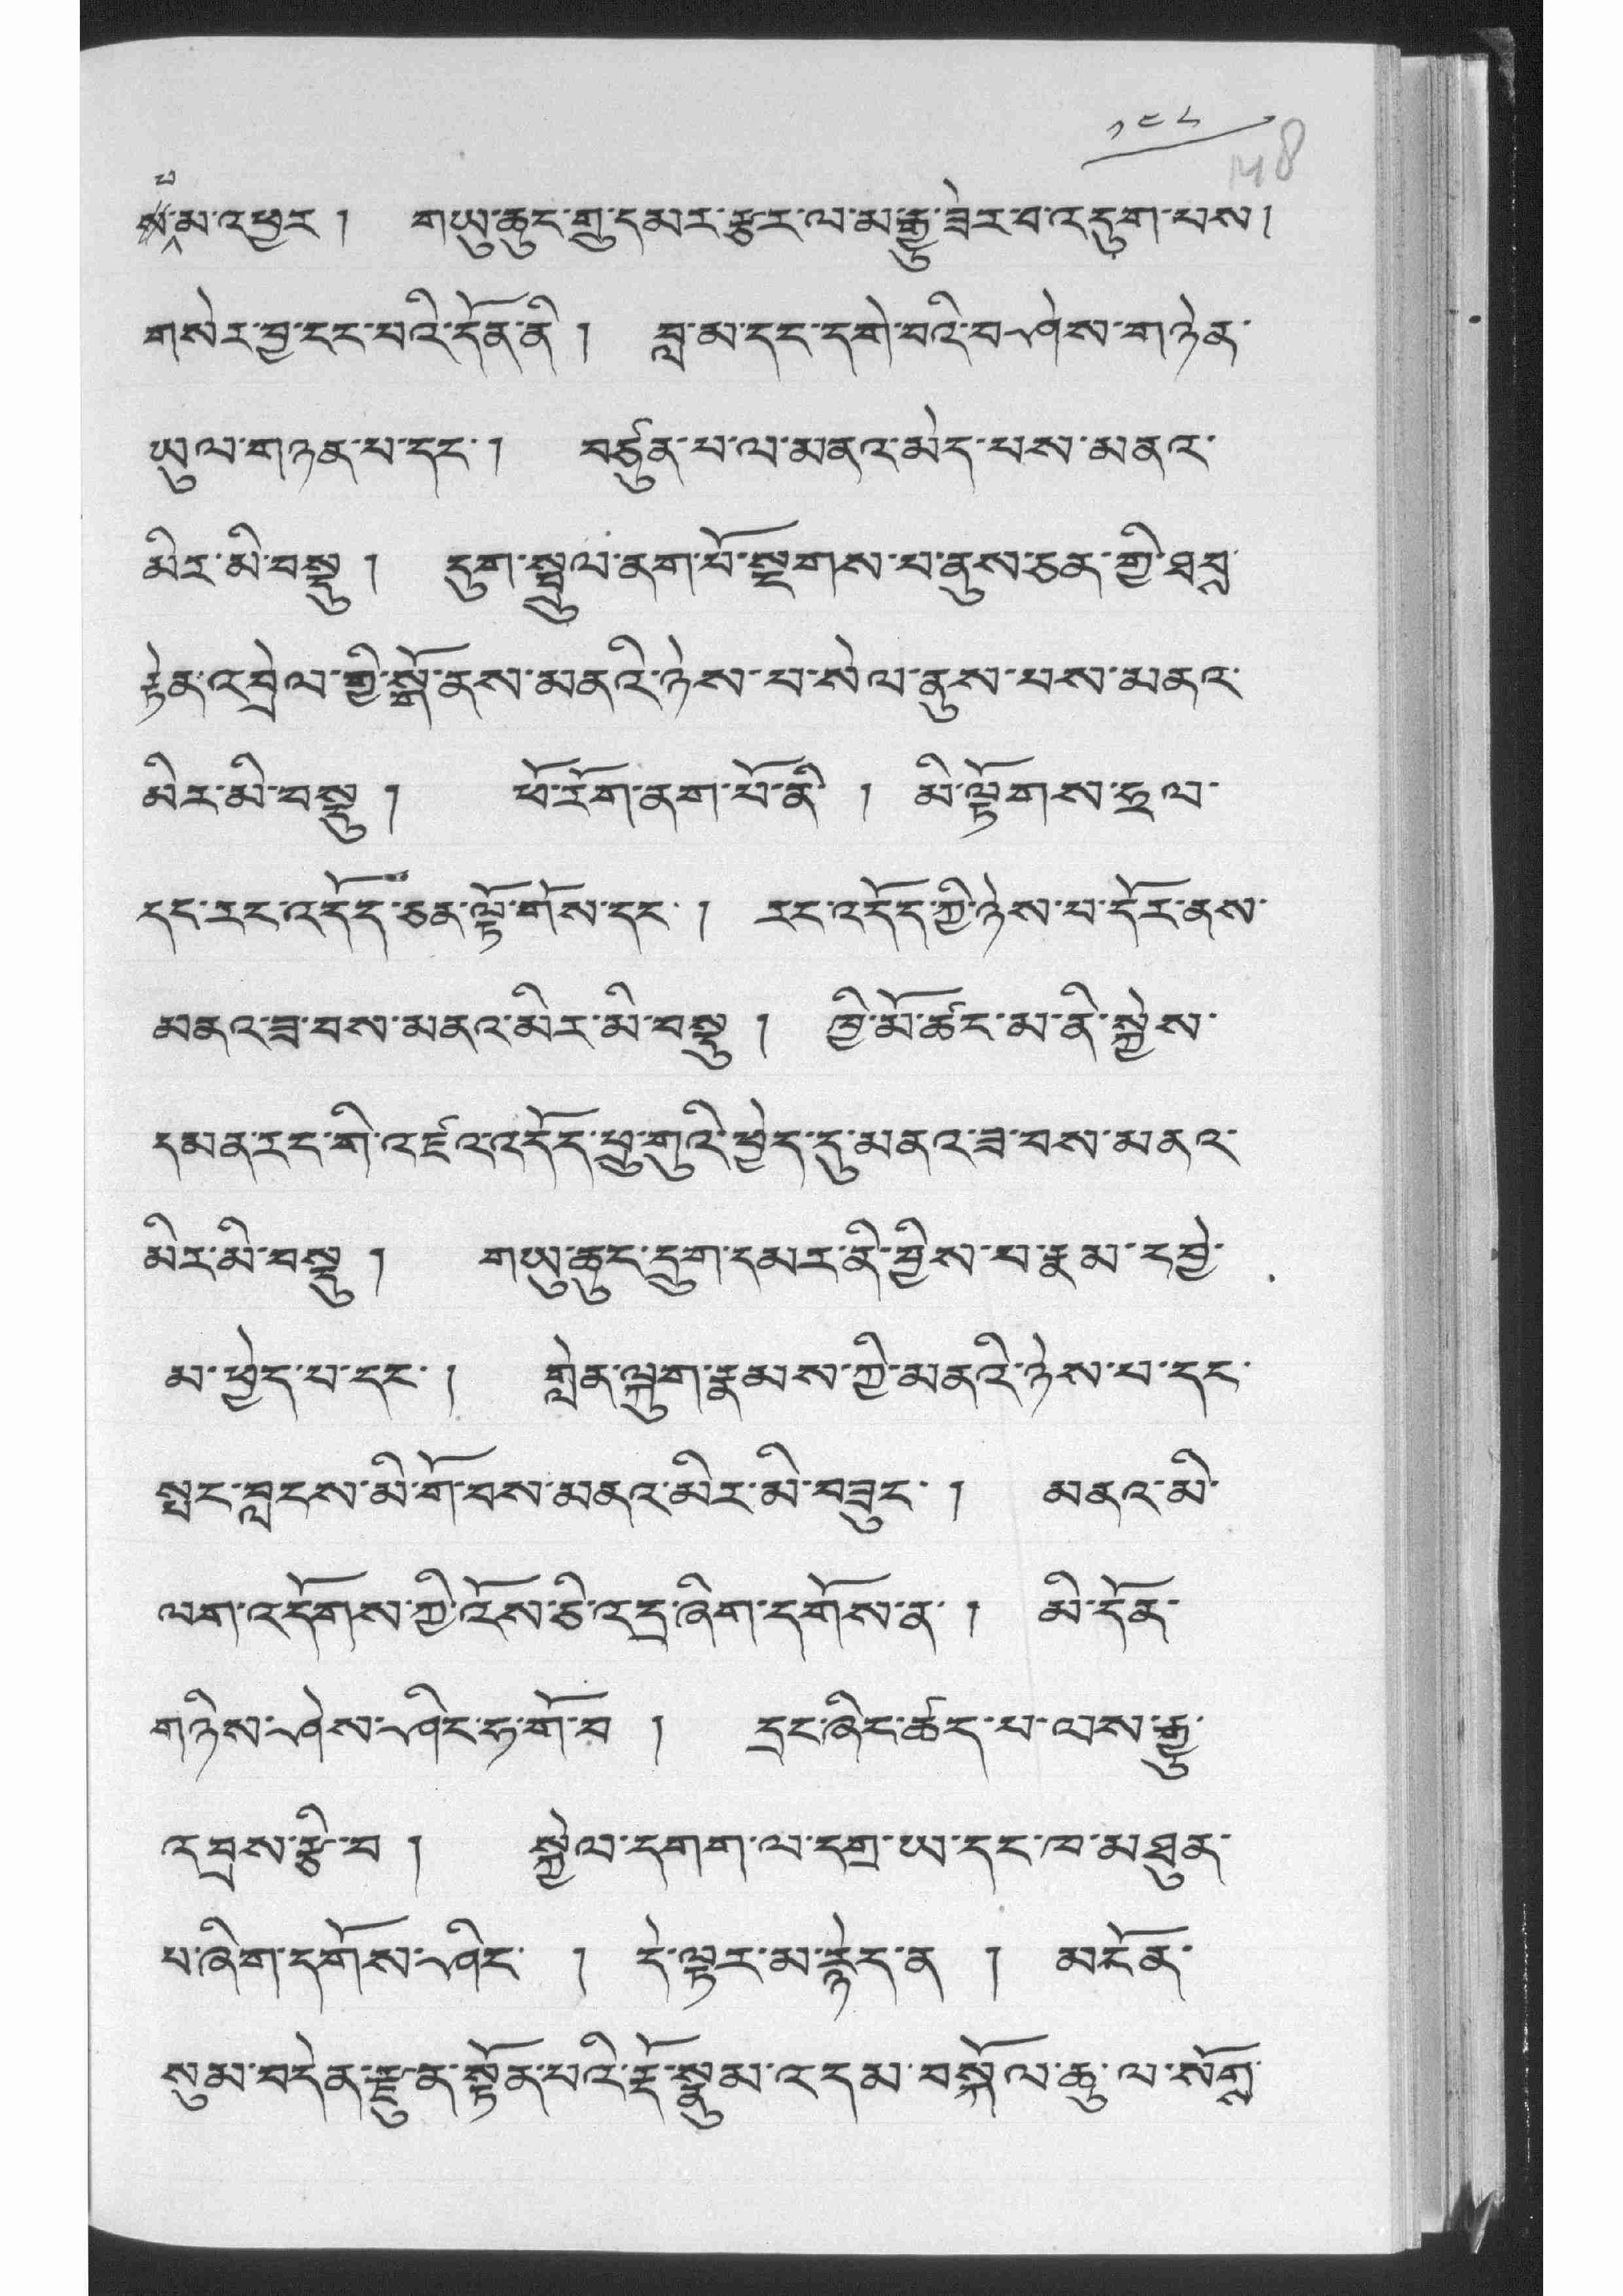 ༡༤༨
148
ས་མ་འཕྱར། གཡུ་ཆུང་གྲུ་དམར་རྩར་ལ་མ་རྒྱུ་ཟེར་བ་འདུག་པས།
གསེར་བྱ་དང་པའི་དོན་ནི། བླ་མ་དང་དགེ་བའི་བཤེས་གཉེན་
ཡུལ་གཉན་པ་དང་། བཙུན་པ་ལ་མནའ་མེད་པས་མནའ་
མིར་མི་བསྡུ། དུག་སྦྲུལ་ནག་པོ་སྔགས་པ་ནུས་ཅན་གྱི་ཐབླ
རྟེན་འབྲེལ་གྱི་སྒོ་ནས་མནའི་ཉེས་པ་སེལ་ནུས་པས་མནའ་
མིར་མི་བསྡུ། ཕོ་རོག་ནག་པོ་ནི། མི་ལྟོགས་ཧྲལ་
དང་རང་འདོད་ཅན་ལྟོ་གོས་དང་། རང་འདོད་ཀྱི་ཉེས་པ་དོར་ནས་
མནའ་ཟ་བས་མནའ་མིར་མི་བསྡུ། ཁྱི་མོ་ཚོང་མ་ནི་སྐྱེས་
དམན་རང་གི་འཛའ་འདོད་ཕྲུ་གུའི་ཕྱེད་དུ་མནའ་ཟ་བས་མནའ་
མིར་མི་བསྡུ། གཡུ་ཆུང་དྲུག་དམར་ནི་བྱིས་པ་རྣམ་དབྱེ་
མ་ཕྱེད་པ་དང་། གླེན་ལྐུག་རྣམས་ཀྱི་མནའི་ཉེས་པ་དང་
སྤང་བླངས་མི་གོ་བས་མནའ་མིར་མི་བཟུང་། མནའ་མི་
ལག་འདོགས་ཀྱི་འོས་ཅི་འདྲ་ཞིག་དགོས་ན། མི་དོན་
གཉིས་ཤེས་ཤིང་ཧ་གོ་བ། དྲང་ཞིང་ཚད་པ་ལས་རྒྱུ་
འབྲས་རྩི་བ། སྐྱེལ་དགག་ལ་དགྲ་ཡ་དང་ཁ་མཐུན་
པ་ཞིག་དགོས་ཤིང་། དེ་ལྟར་མ་རྙེད་ན། མངོན་
སུམ་བདེན་རྫུན་སྟོན་པའི་རྡོ་སྣུམ་འདམ་བསྐོལ་ཆུ་ལ་སོགླ